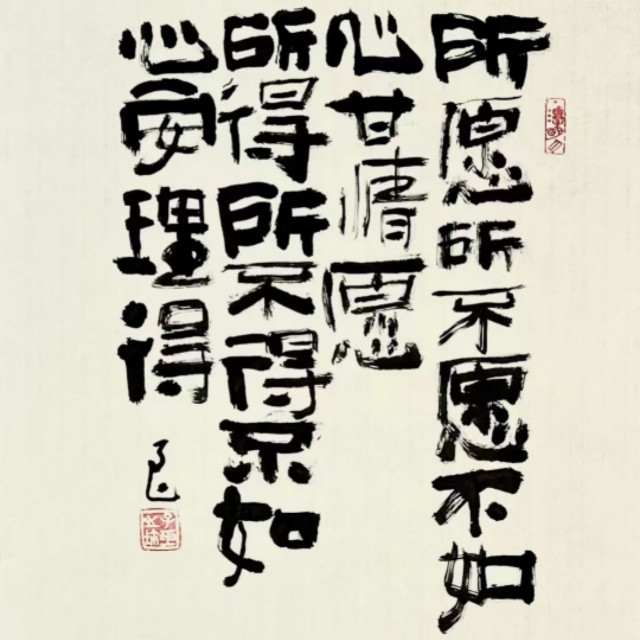 所愿所不愿不如
心甘情愿
所得所不得不如
心安理得